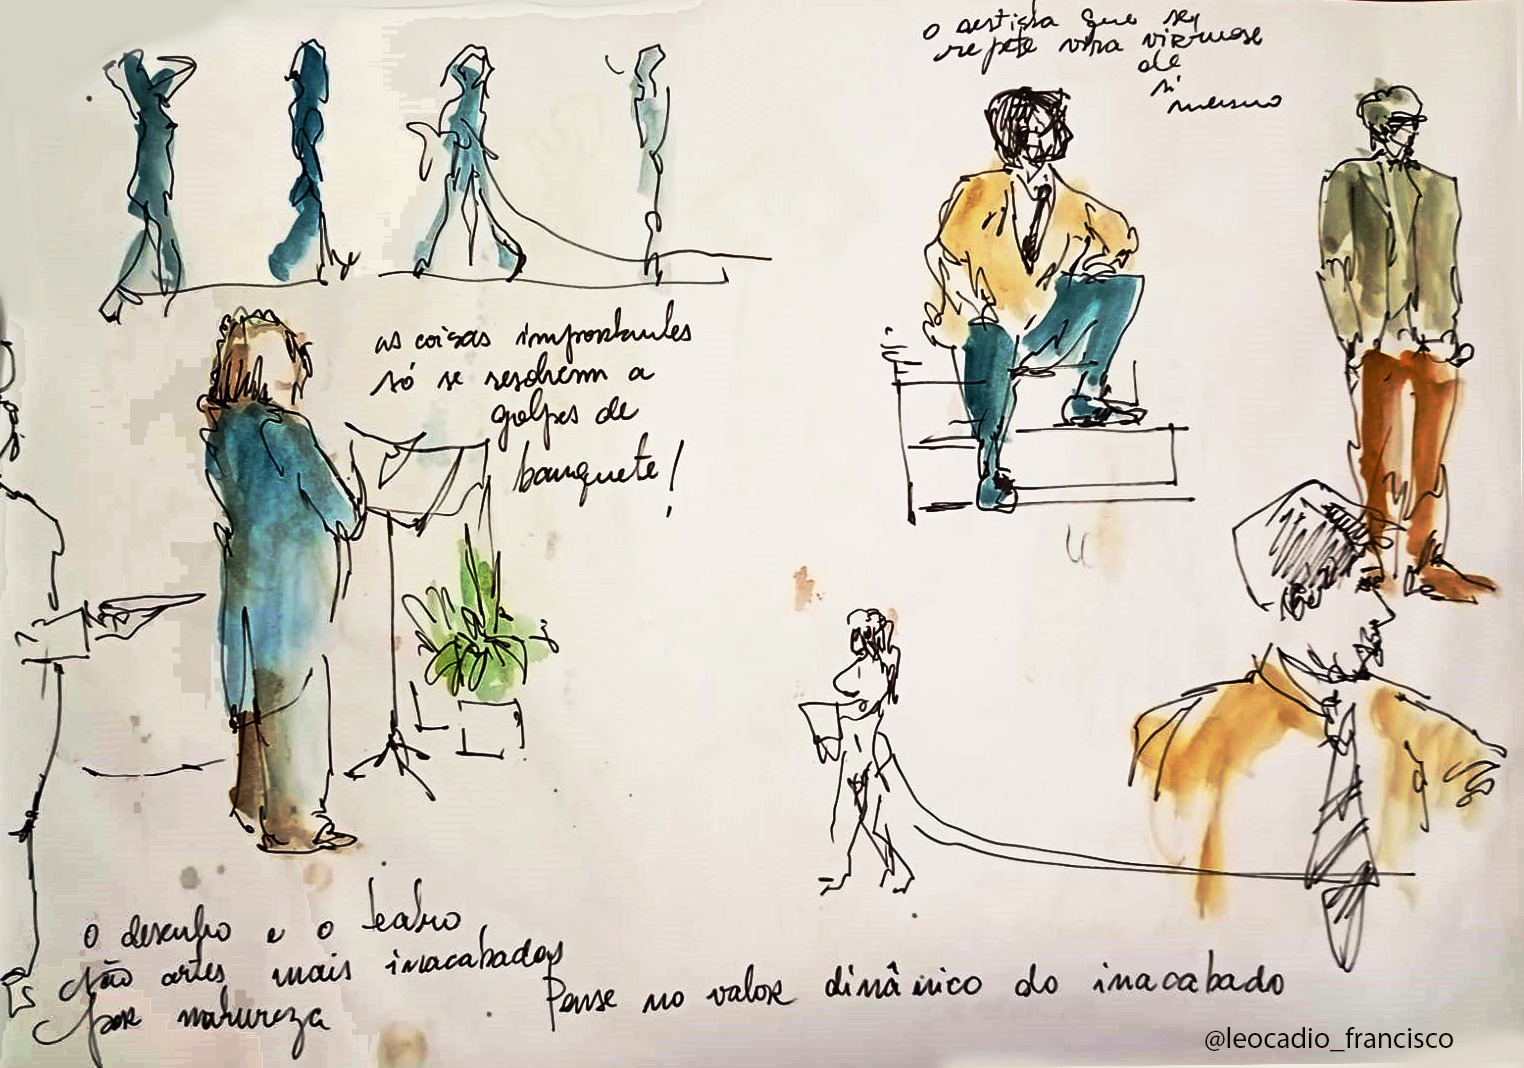 o artista que se
repete vira virtuose
de
si
mesmo
as coisas importantes
só se resolvem a
golpes de
banquete!
o desenho e o teatro
são artes mais inacabadas
por natureza
Pense no valor dinâmico do inacabado
@leocadio_francisco